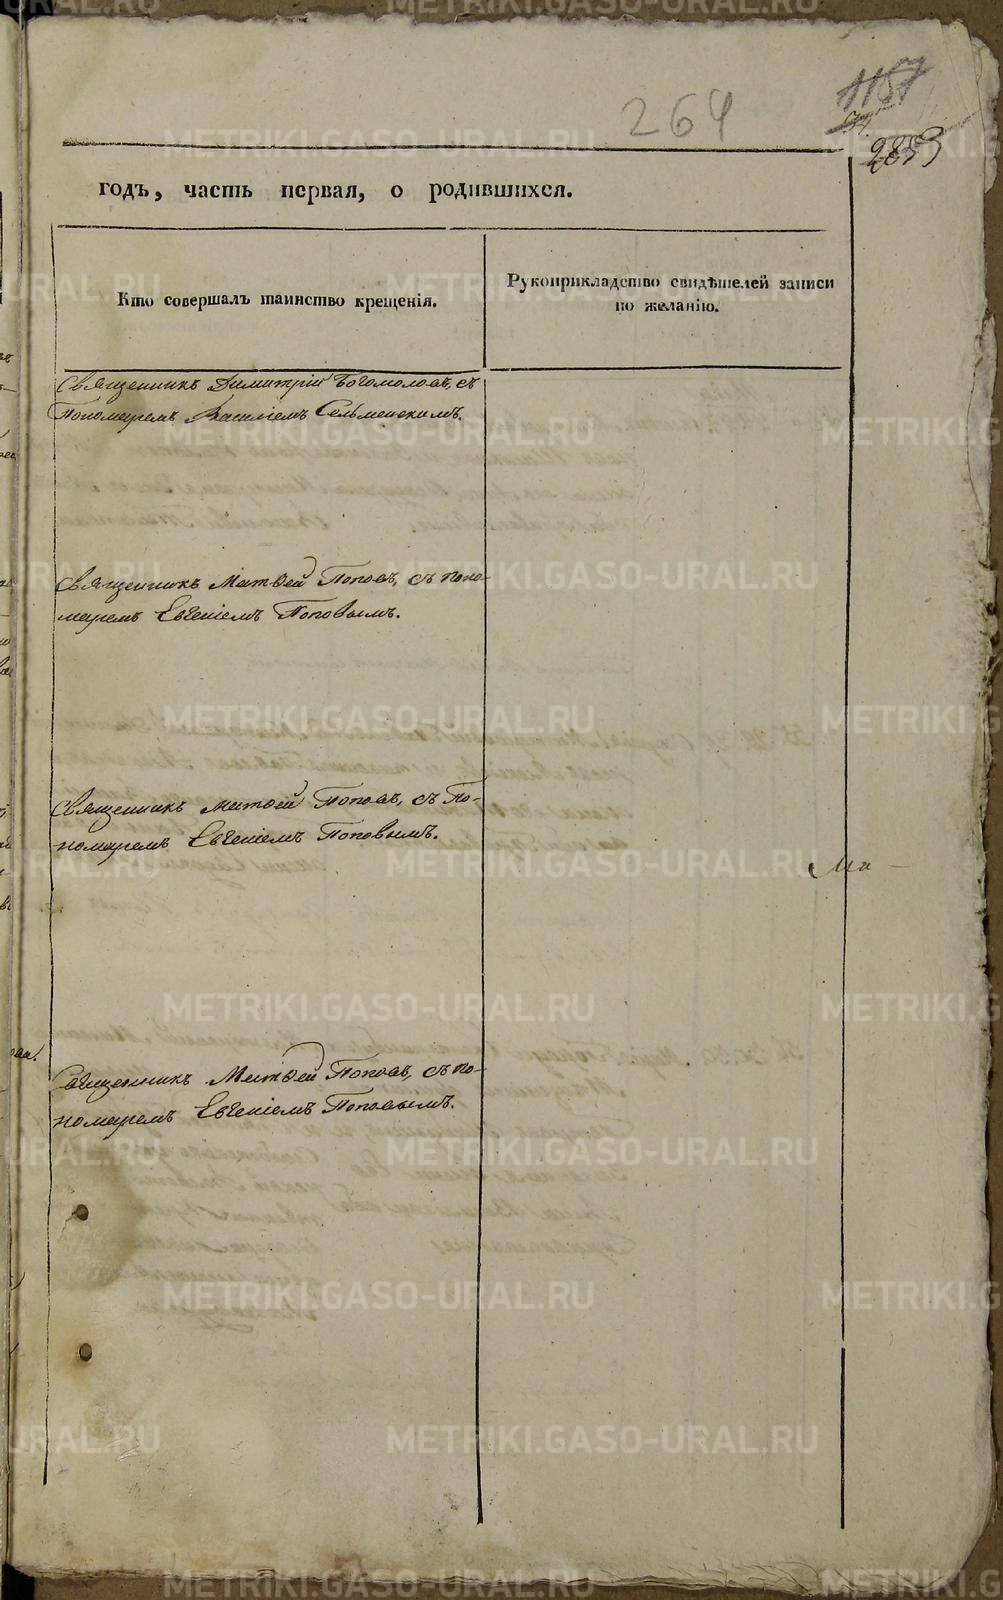 264
1157
2859
годъ, часть первая, о родившихся.
Кто совершалъ таинство крещенія.
Рукоприкладство свидѣтелей записи
по желанію.
Священникъ Димитрій Богомоловъ, съ
Пономаремъ Василіемъ Сельменскимъ.
Священникъ Матвей Поповъ, съ поно-
маремъ Евгеніемъ Поповымъ.
Священникъ Матвей Поповъ, съ По-
номаремъ Евгеніемъ Поповымъ.
Ма
Священникъ Матвей Поповъ, съ по-
номаремъ Евгеніемъ Поповымъ.
METRIKI.GASO-URAL.RU